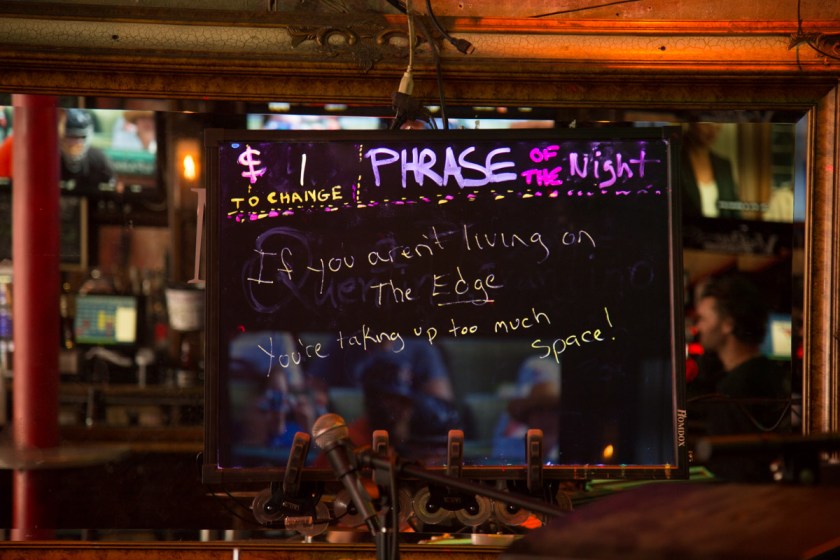 $ 1
TO CHANGE
PHRASE OF THE Night
If you aren't living on
The Edge
You're taking up too much
space!